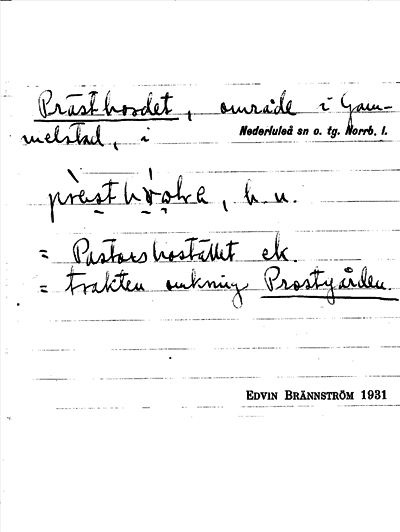 Prästbordet, område i Gam-
melstad, i Nederluleå sn o. tg. Norrb. l.
b. n.
= Pastorsbostället el.
= trakten omkring Prostgården.
EDVIN BRÄNNSTRÖM 1931